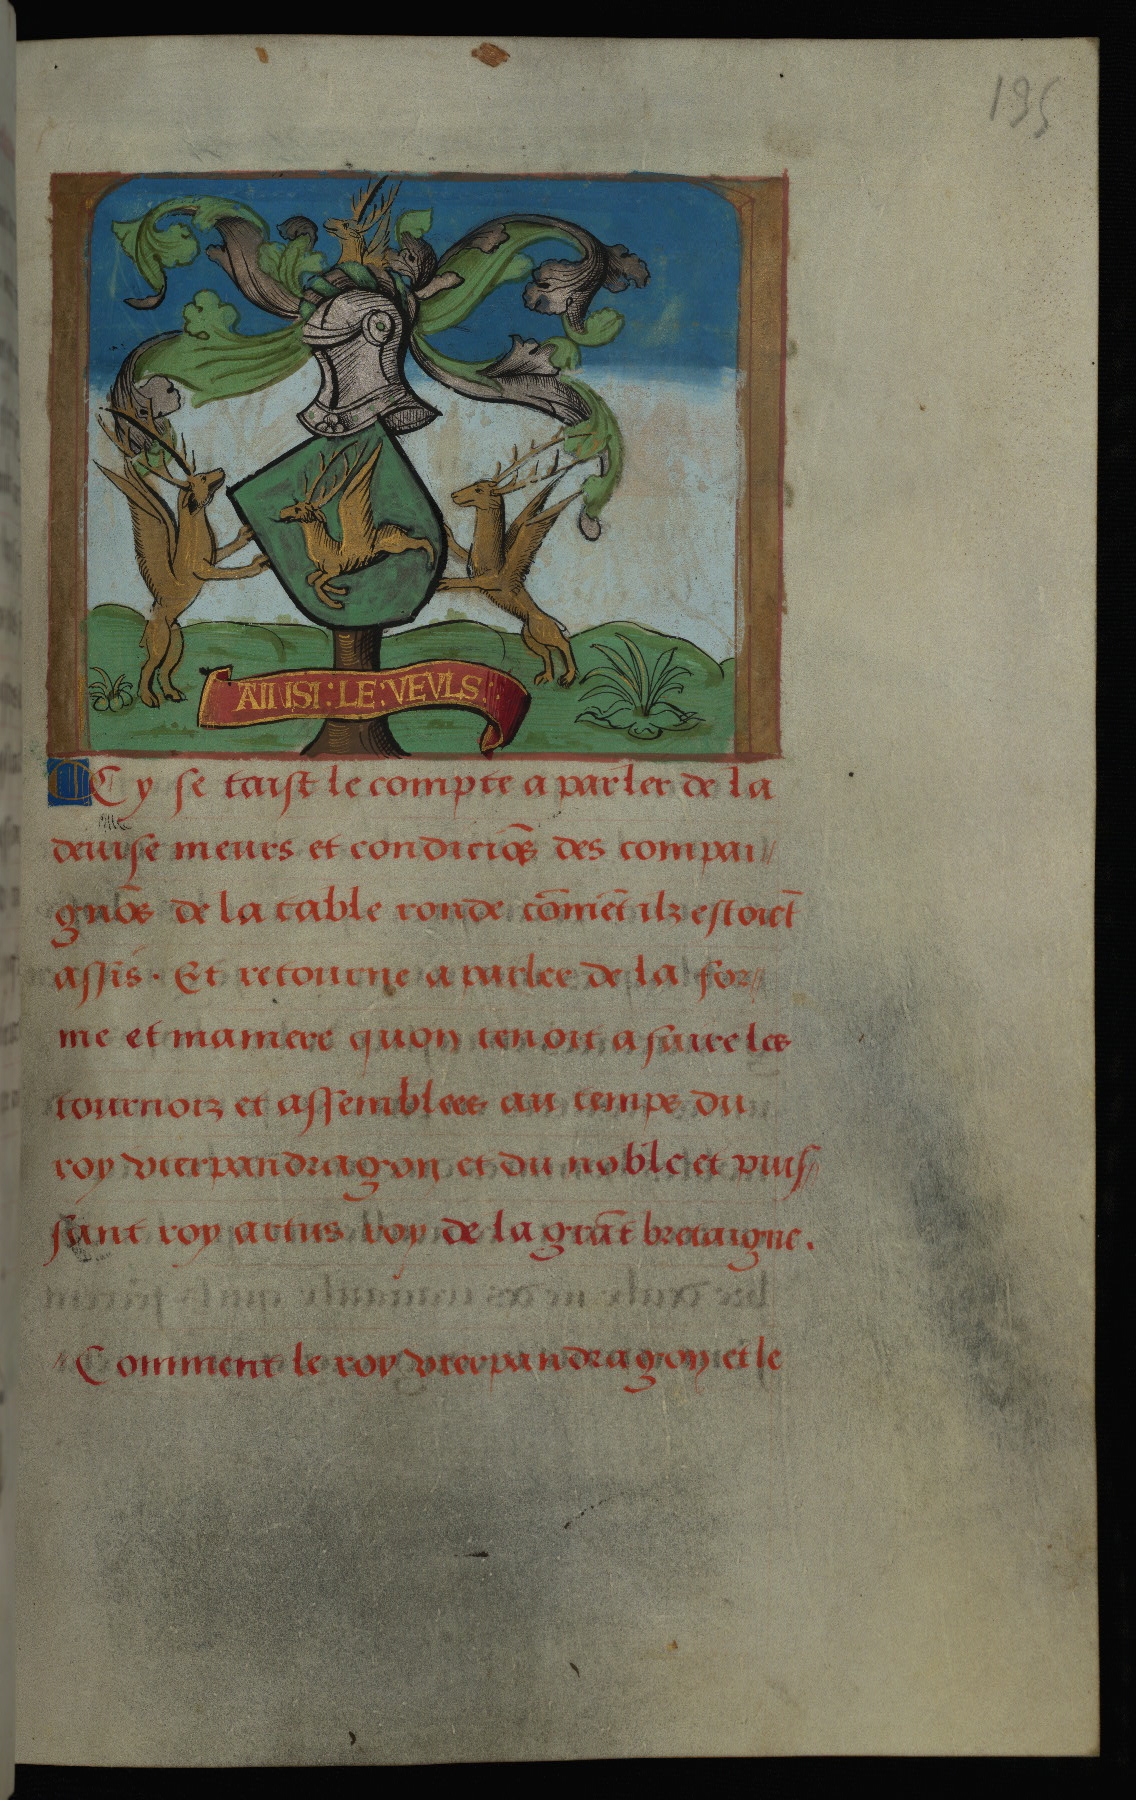 195
AINSI : LE : VEVLS :
Cy se taist le compte a parler de la
deuise meurs et condiciōs des compai
gnōs de la table ronde cōmēt ilz estoiēt
assis. Et retourne a parler de la for
me et maniere quon tenoit a faire les
tournoiz et assemblees au temps du
roy vterpandragon et du noble et puis
sant roy artus roy de la grāt bretaigne.
Comment le roy vterpandragon et le